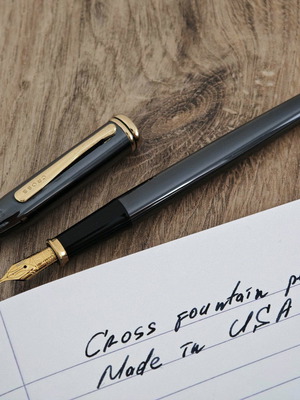 CROSS
Cross fountain
Made in USA